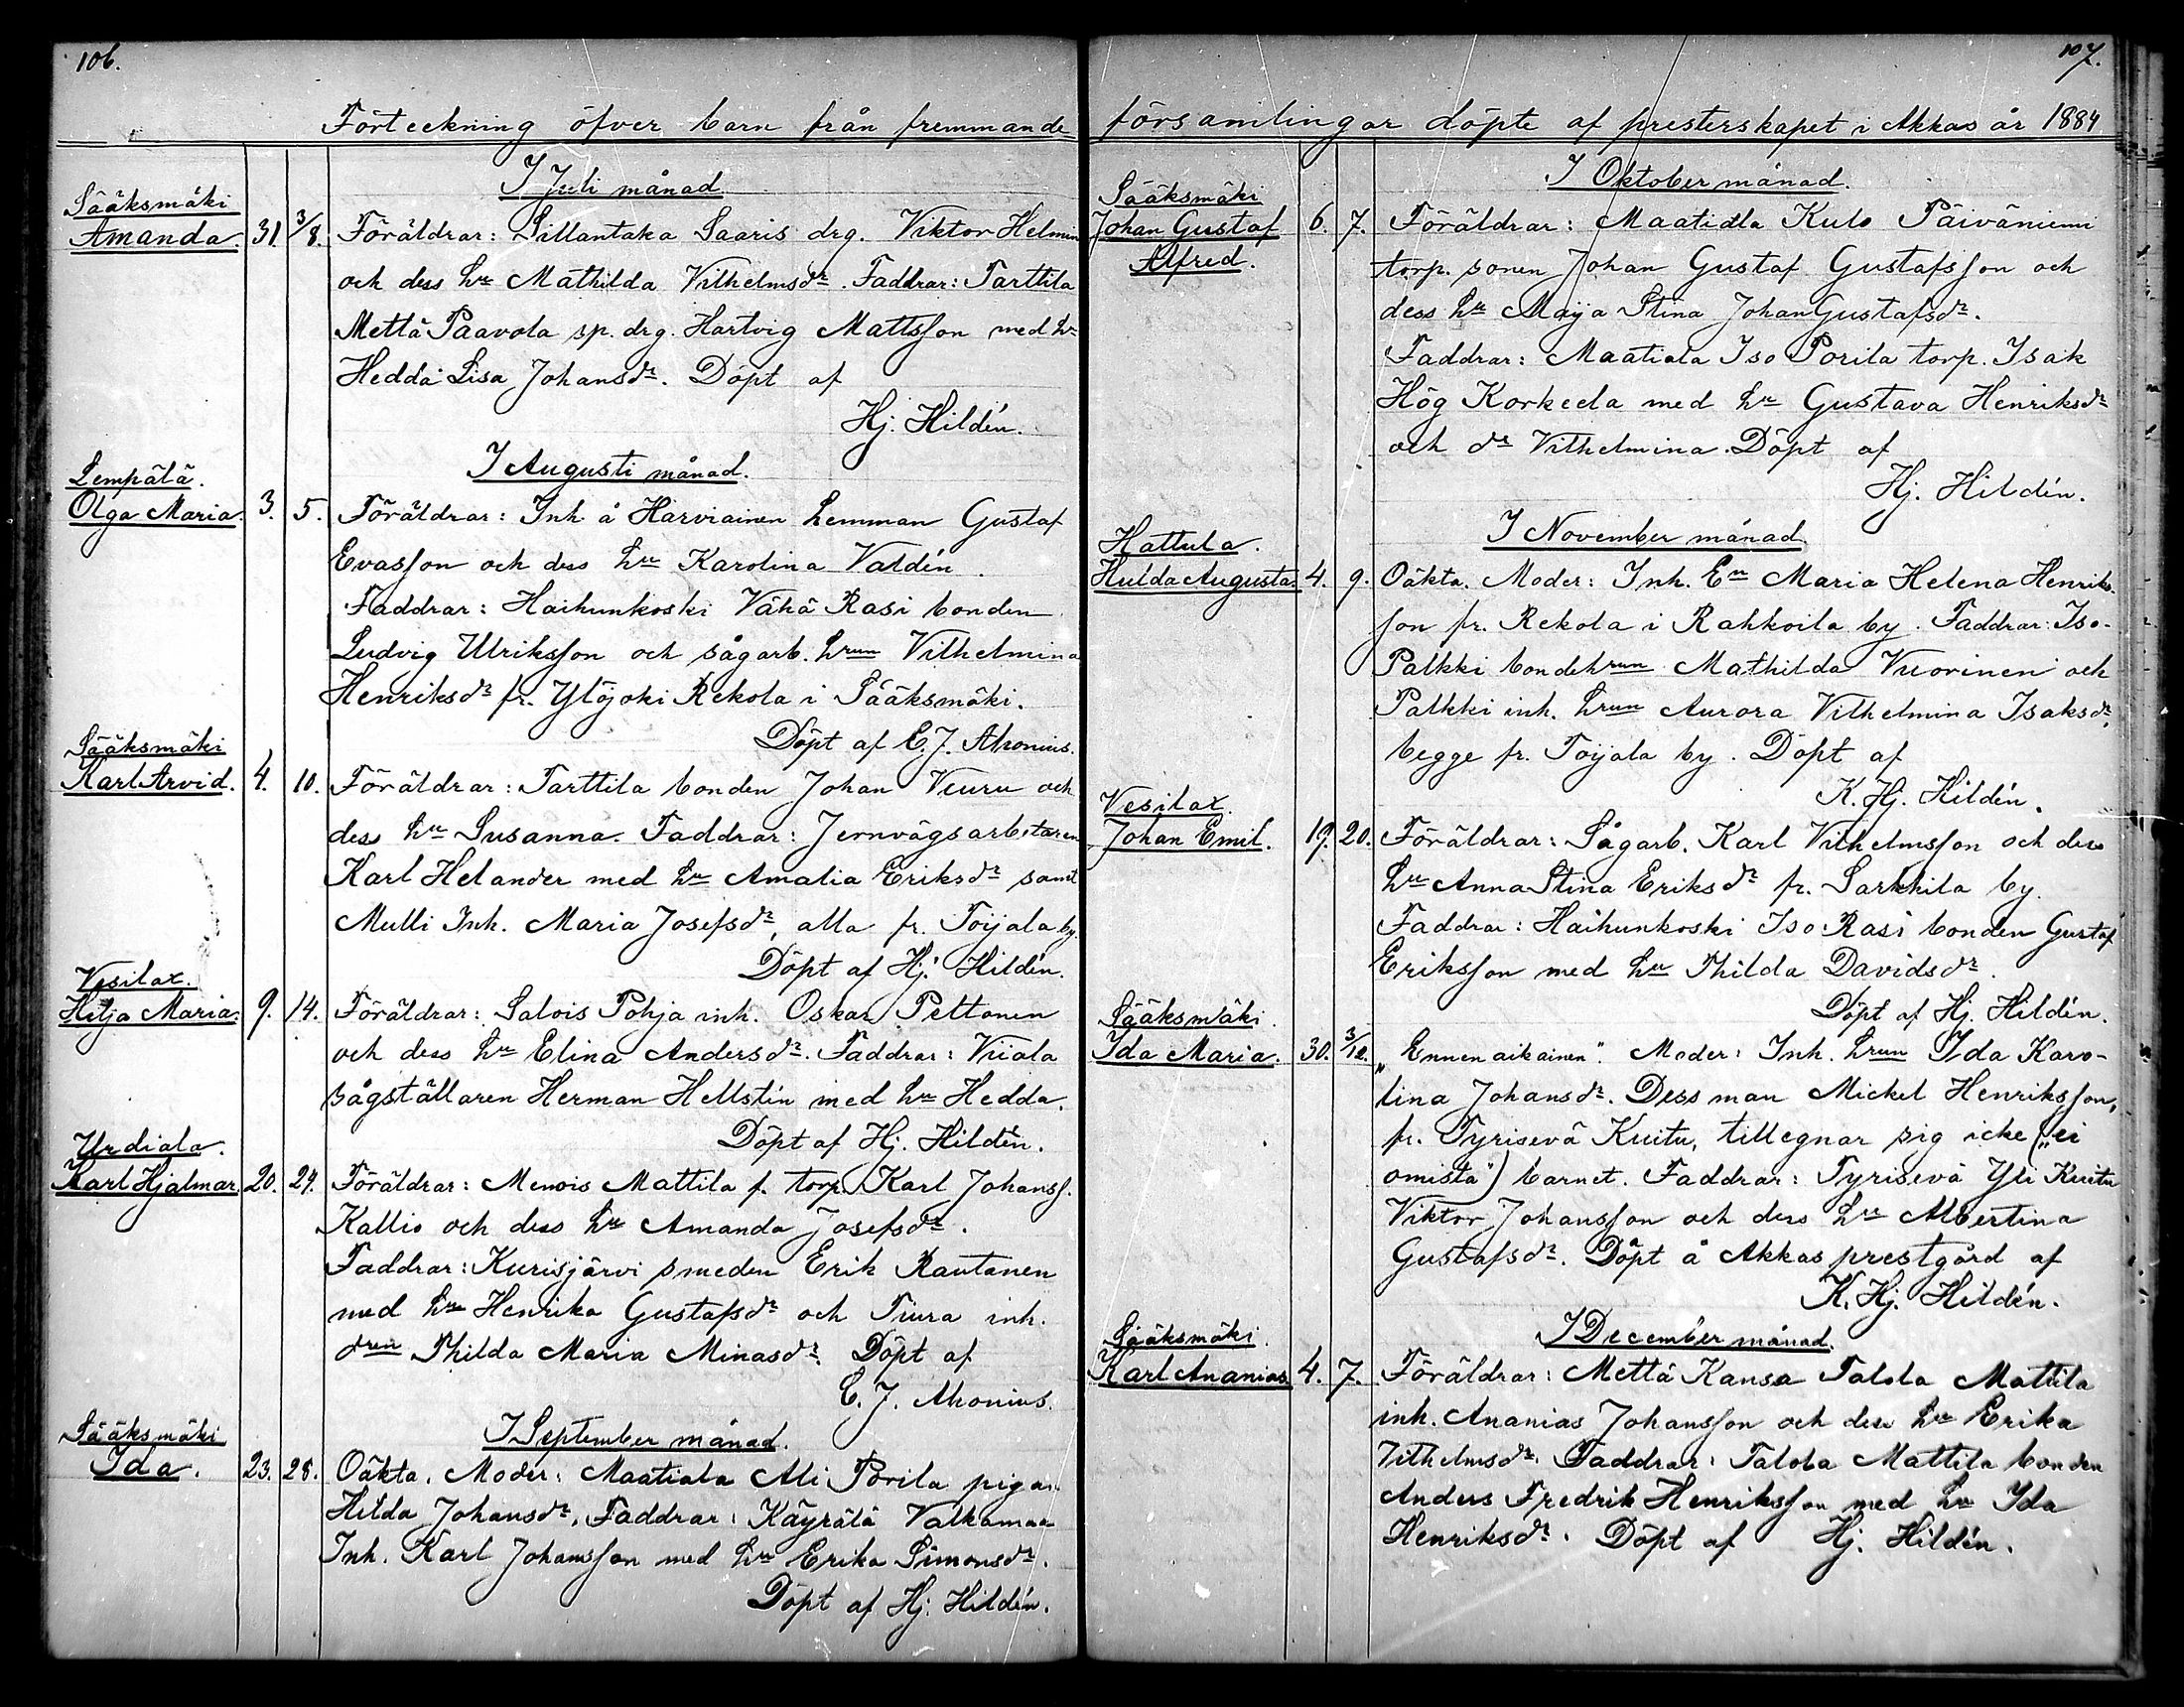 106.
Förteckning öfver barn från fremmande
I Juli månad
Sääksmäki
Amanda. 31. 3/8. Föräldrar: Sillantaka Saaris drg. Viktor Helmin
och dess hu Mathilda Vilhelmsdr. Faddrar: Tarttila
Mettä Paavola sp. drg. Hartvig Mattsson med hu
Hedda Lisa Johansdr. Döpt af
Hj. Hildén.
I Augusti månad.
Lempälä.
Olga Maria. 3. 5. Föräldrar: Inh. å Harviainen hemman Gustaf
Evasson och dess hu Karolina Valdén.
Faddrar: Haihunkoski Vähä Rasi bonden
Ludvig Ulriksson och sågarb. hrun Vilhelmina
Henriksdr fr. Ylöjoki Rekola i Sääksmäki.
Döpt af E. J. Ahonius.
Sääksmäki
Karl Arvid. 4. 10. Föräldrar: Tarttila bonden Johan Vuuru och
dess hu Susanna. Faddrar: Jernvägsarbetaren
Karl Helander med hu Amalia Eriksdr samt
Mulli Inh. Maria Josefsdr, alla fr. Toijala by.
Döpt af Hj. Hildén.
Vesilax.
Hilja Maria. 9. 14. Föräldrar: Salois Pohja inh. Oskar Peltonen
och dess hu Elina Andersdr. Faddrar: Viiala
sågställaren Herman Hellstén med hu Hedda.
Döpt af Hj. Hildén.
Urdiala.
Karl Hjalmar. 20. 24. Föräldrar: Menois Mattila f. torp. Karl Johanss.
Kallio och dess hu Amanda Josefsdr.
Faddrar: Kurisjärvi smeden Erik Rautanen
med hu Henrika Gustafsdr och Tiura inh.
dren Thilda Maria Minasdr. Döpt af
E. J. Ahonius.
I September månad.
Sääksmäki
Ida. 23. 28. Oäkta. Moder: Maatiala Ali Porila pigan
Hilda Johansdr. Faddrar: Käyrälä Valkamaa
Inh. Karl Johansson med hu Erika Simonsdr.
Döpt af Hj. Hildén.
107.
församlingar döpte af presterskapet i Akkas år 1884
I Oktober månad.
Sääksmäki
Johan Gustaf 6. 7. Föräldrar: Maatialla Kulo Päiväniemi
Alfred. torp. sonen Johan Gustaf Gustafsson och
dess hu Maija Stina Johan Gustafsdr.
Faddrar: Maatiala Iso Porila torp. Isak
Hög Korkeela med hu Gustava Henriksdr
och dr Vilhelmina. Döpt af
Hj. Hildén.
I November månad.
Hattula.
Hulda Augusta. 4. 9. Oäkta. Moder: Inh. En Maria Helena Henriks-
son fr. Rekola i Rahkoila by. Faddrar: Iso-
Palkki bondehrun Mathilda Vuorinen och
Palkki inh. hrun Aurora Vilhelmina Isaksdr
begge fr. Toijala by. Döpt af
K. Hj. Hildén.
Vesilax.
Johan Emil. 19. 20. Föräldrar: Sågarb. Karl Vilhelmsson och dess
hu Anna Stina Eriksdr fr. Sarkkila by.
Faddrar: Haihunkoski Iso Rasi bonden Gustaf
Eriksson med hu Thilda Davidsdr.
Döpt af Hj. Hildén.
Sääksmäki.
Ida Maria. 30. 3/12. "Ennenaikainen". Moder: Inh. hrun Ida Karo-
lina Johansdr. Dess man Mickel Henriksson,
fr. Tyrisevä Kuitu, tillegnar sig icke ("ei
omista") barnet. Faddrar: Tyrisevä Yli Kuitu
Viktor Johansson och dess hu Albertina
Gustafsdr. Döpt å Akkas prestgård af
K. Hj. Hildén.
I December månad.
Sääksmäki.
Karl Ananias. 4. 7. Föräldrar: Mettä Kansa Talola Mattila
inh. Ananias Johansson och dess hu Erika
Vilhelmsdr. Faddrar: Talola Mattila bonden
Anders Fredrik Henriksson med hu Ida
Henriksdr. Döpt af Hj. Hildén.